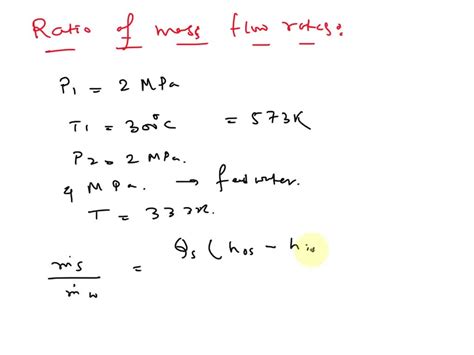 Ratio of mass flow rates:
P1 = 2 MPa
T1 = 300°C = 573K
P2 = 2 MPa.
4 MPa. → feed water.
T = 333K.
ṁs / ṁw = Qs (hos - his